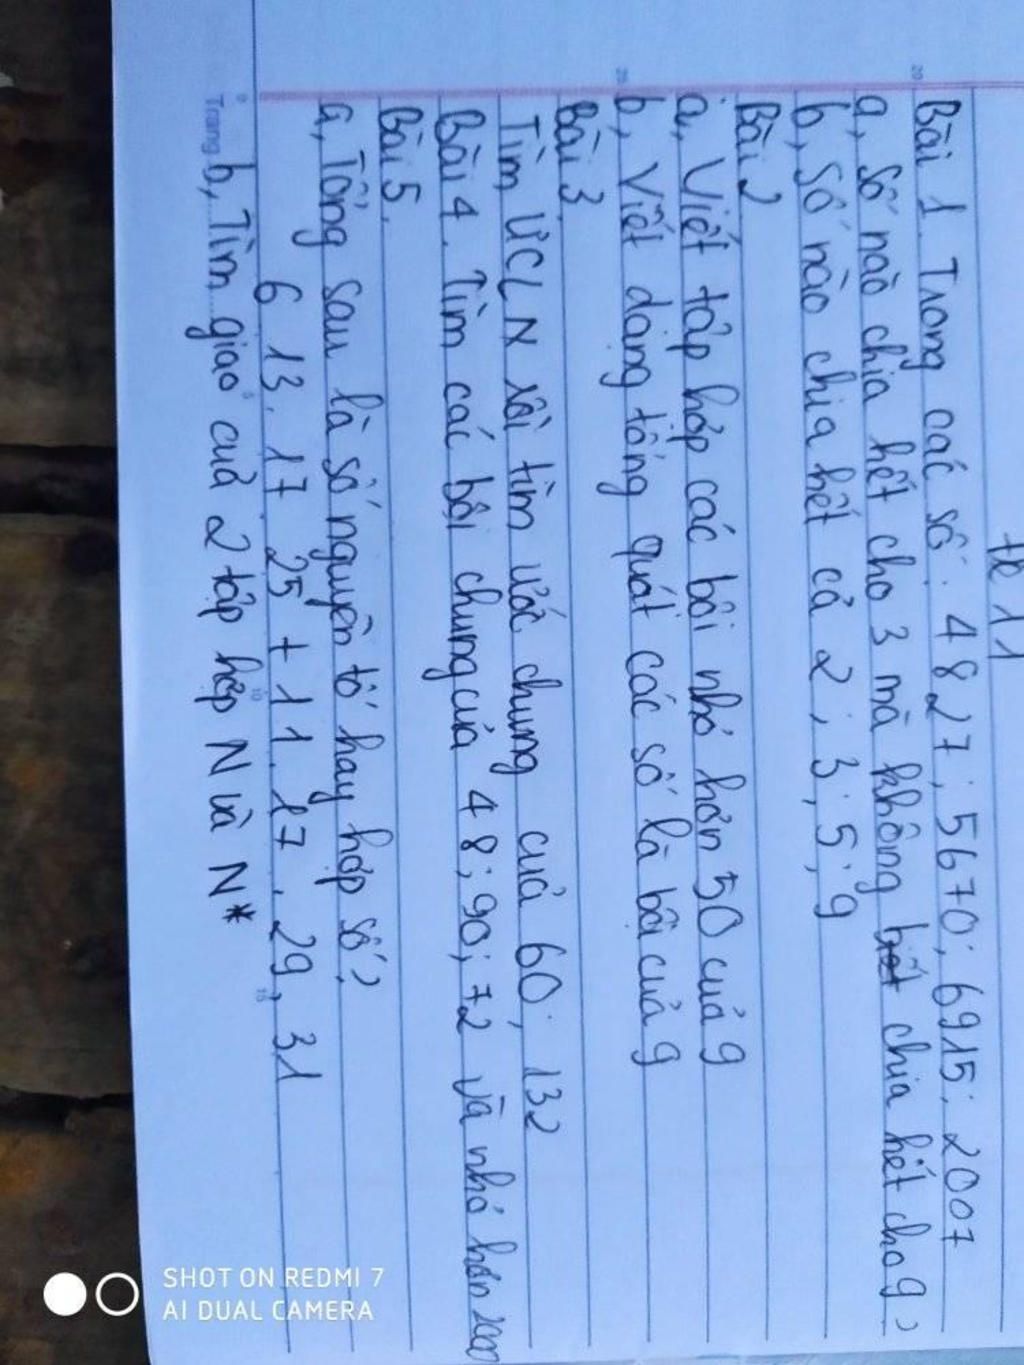 Đề 11
Bài 1. Trong các số: 4827; 5670; 6915; 2007
a, Số nào chia hết cho 3 mà không chia hết cho 9?
b, Số nào chia hết cả 2; 3; 5; 9
Bài 2
a, Viết tập hợp các bội nhỏ hơn 50 của 9
b, Viết dạng tổng quát các số là bội của 9
Bài 3.
Tìm ƯCLN rồi tìm ước chung của 60; 132
Bài 4. Tìm các bội chung của 48; 90; 72 và nhỏ hơn 2000
Bài 5.
a, Tổng sau là số nguyên tố hay hợp số?
6 13. 17 25 + 11. 17. 29. 31
b, Tìm giao của 2 tập hợp N và N*
Trang
SHOT ON REDMI 7
AI DUAL CAMERA